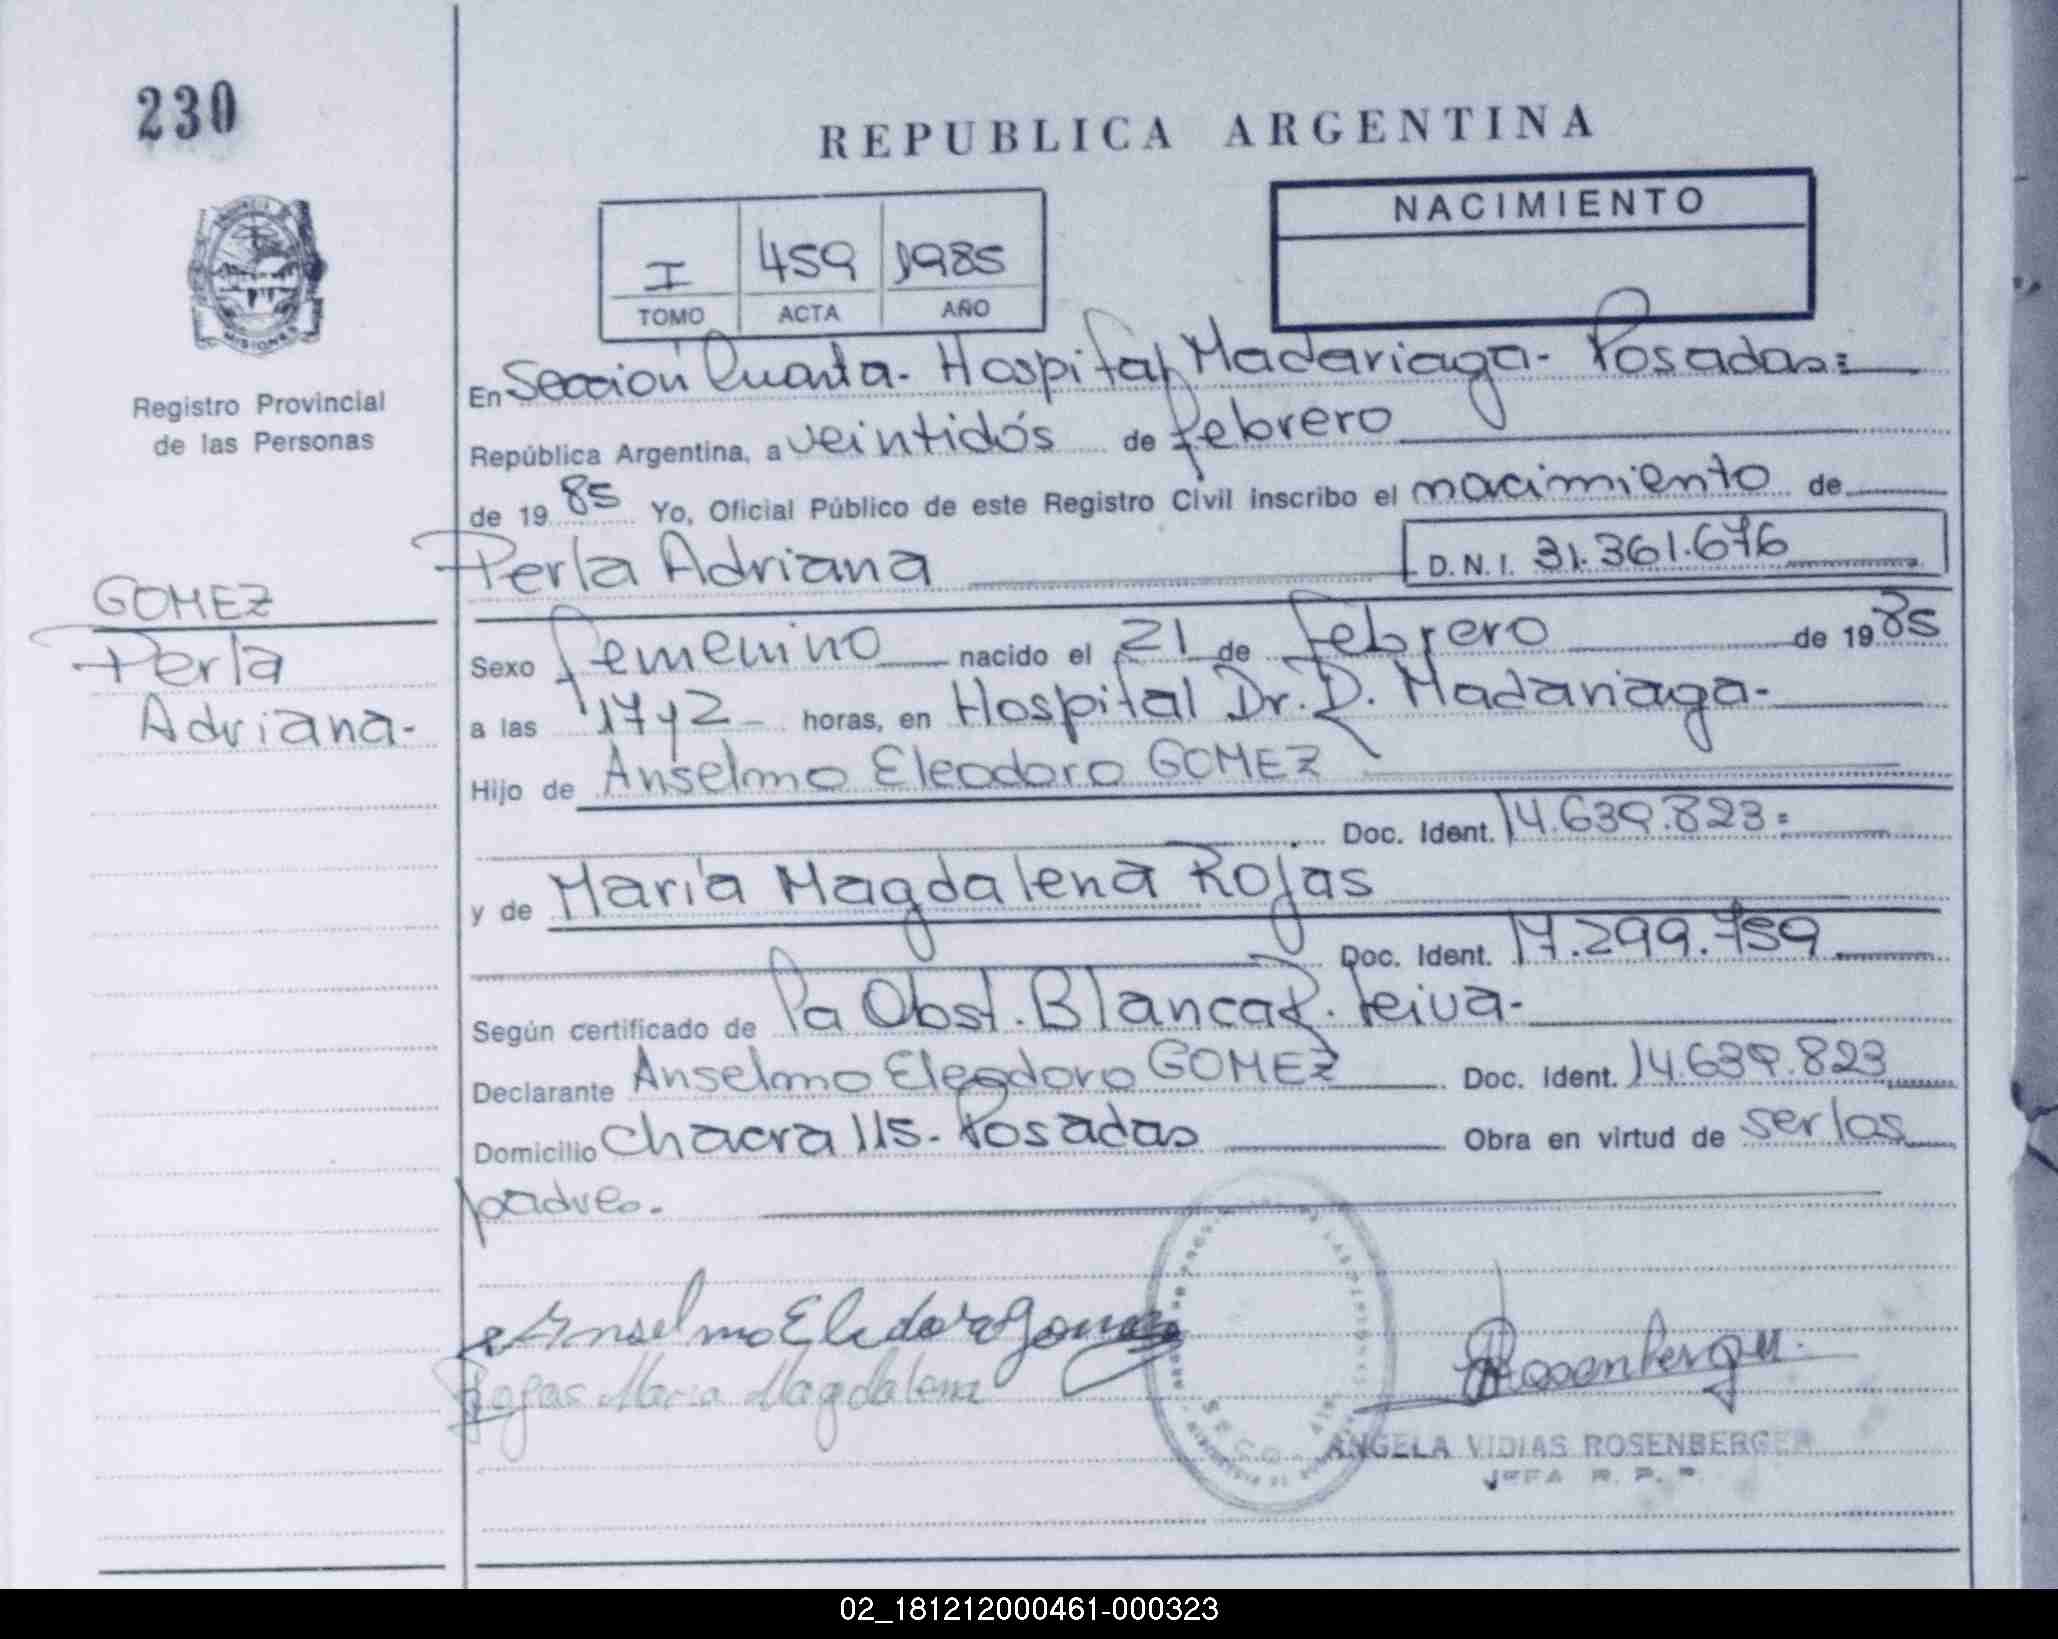 230
REPUBLICA ARGENTINA
NACIMIENTO
I 459 1985
TOMO ACTA AÑO
MISIONES
Registro Provincial
de las Personas
En Sección Cuarta- Hospital Madariaga- Posadas=
República Argentina, a veintidós de febrero
de 1985 Yo, Oficial Público de este Registro Civil inscribo el nacimiento de
Perla Adriana D.N.I. 31.361.676
GOMEZ
Perla
Adriana-
Sexo femenino nacido el 21 de febrero de 1985
a las 17 y 2 horas, en Hospital Dr. R. Madariaga-
Hijo de Anselmo Eleodoro GOMEZ
Doc. Ident. 14.639.823=
y de María Magdalena Rojas
Doc. Ident. 17.299.759
Según certificado de Pa Obst. Blanca R. Leiva-
Declarante Anselmo Eleodoro GOMEZ Doc. Ident. 14.639.823
Domicilio Chacra 115- Posadas Obra en virtud de ser los
padres.
Anselmo Eleodoro Gomez
Rojas Maria Magdalena
Rosenberger
ANGELA VIDIAS ROSENBERGER
JEFA R. P. P.
02_181212000461-000323